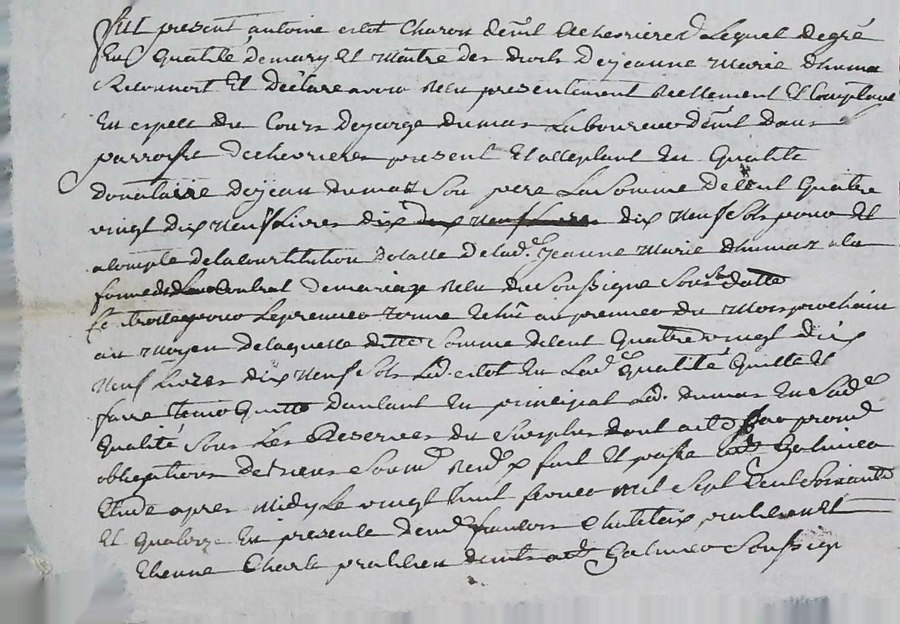 fut present antoine citot Charon demt a chevrieres Lequel de gré
En Qualité de mary Et Maitre des droits De jeanne Marie dhumas
Reconnoit Et déclare avoir Recu presentement Reellement Et Comptant
En espece du Cours De jorge dumas Laboureur demt dans
parroisse de chevrieres present Et acceptant En Qualité
donataire de jean dumas Son pere La Somme De Cent Quatre
vingt dix Neuf Livres dix Neuf Sols pour Et
a Compte de la Constitution dotalle De lad. jeanne Marie dhumas a la
forme du Contrat De mariage Recu du Soussigné Sous Sa datte
pour Le premier Terme Echu au premier du Mois prochain
au Moyen de laquelle ditte Somme de Cent Quatre vingt dix
Neuf Livres dix Neuf Sols Led. citot En Lad. Qualité Quitte Et
faire tenir Quitte dautant En principal Led. dumas En Sad.
Qualité Sous Les Reserves du Surplus dont acte prom.
obligations de biens Soum. Ren. fait Et passé Galmier
Etude apres Midy Le vingt huit fevrier Mil Sept Cent Soixante
Et Quatorze En presence de françois praticien Et
Etienne Charle praticien Galmier Soussign